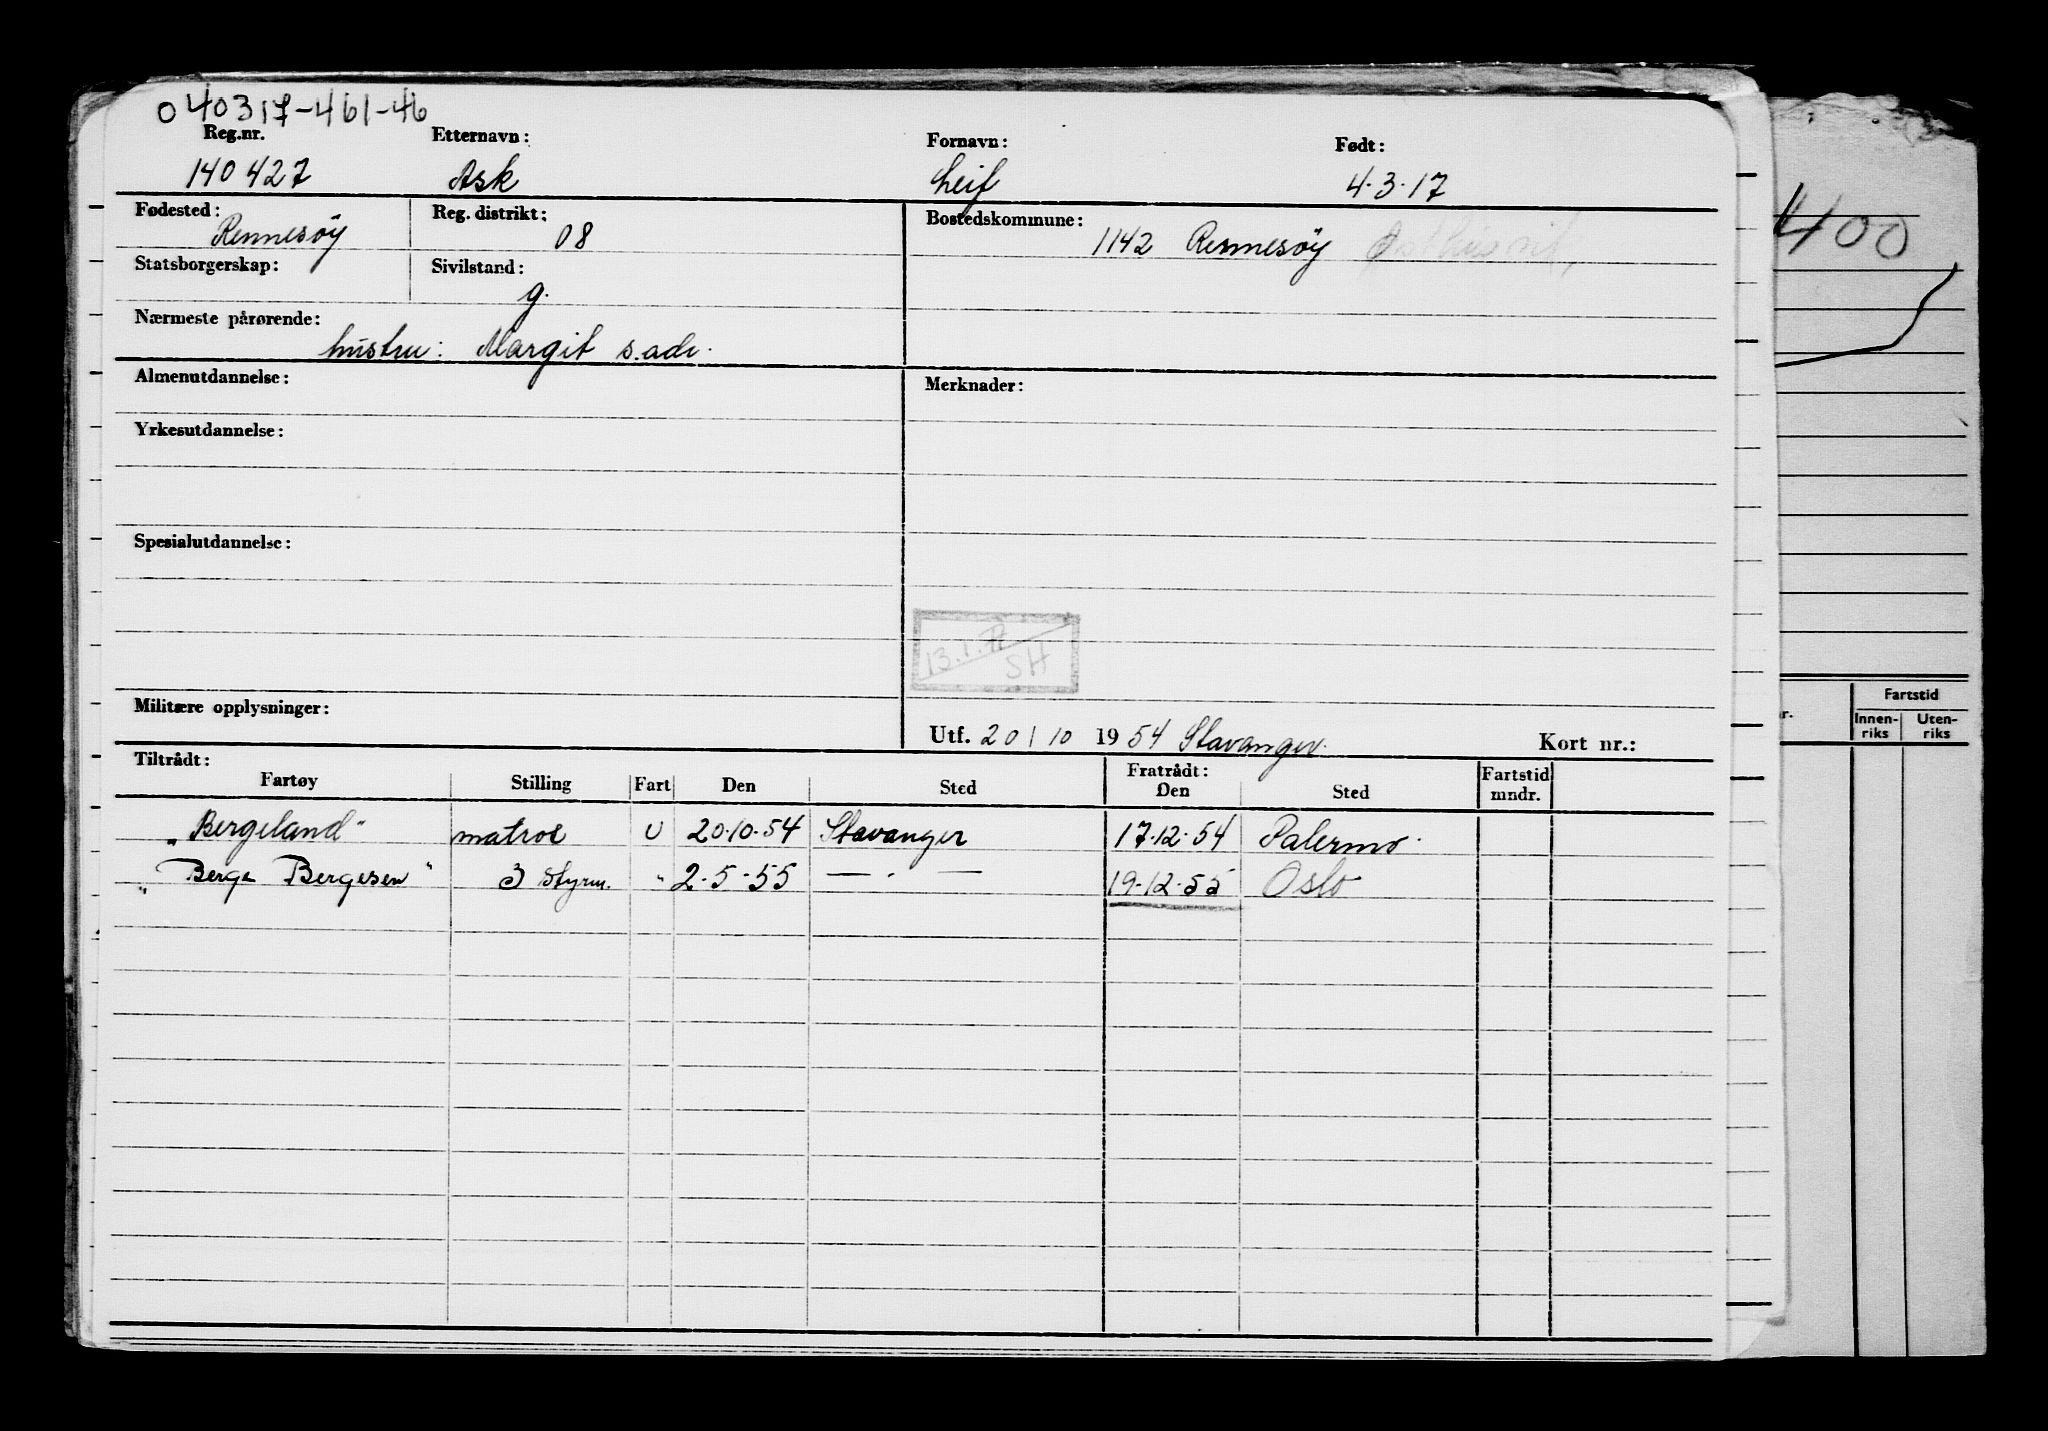 040317-461-46
Reg.nr. Etternavn: Fornavn: Født:
140427 Ask Leif 4.3.17
Fødested: Reg. distrikt: Bostedskommune:
Rennesöy 08 1142 Rennesöy
Statsborgerskap: Sivilstand:
g.
Nærmeste pårørende:
hustru: Margit s.adr.
Almenutdannelse: Merknader:
Yrkesutdannelse:
Spesialutdannelse:
SH
Militære opplysninger:
Utf. 20/10 1954 Stavanger. Kort nr.:
Tiltrådt: Fratrådt: Fartstid
Fartøy Stilling Fart Den Sted Den Sted mndr.
"Bergeland" matros U 20.10.54 Stavanger 17.12.54 Palermo.
"Berge Bergesen" 3 styrm. " 2.5.55 — . — 19.12.55 Oslo
400
Fartstid
Innen-riks Uten-riks